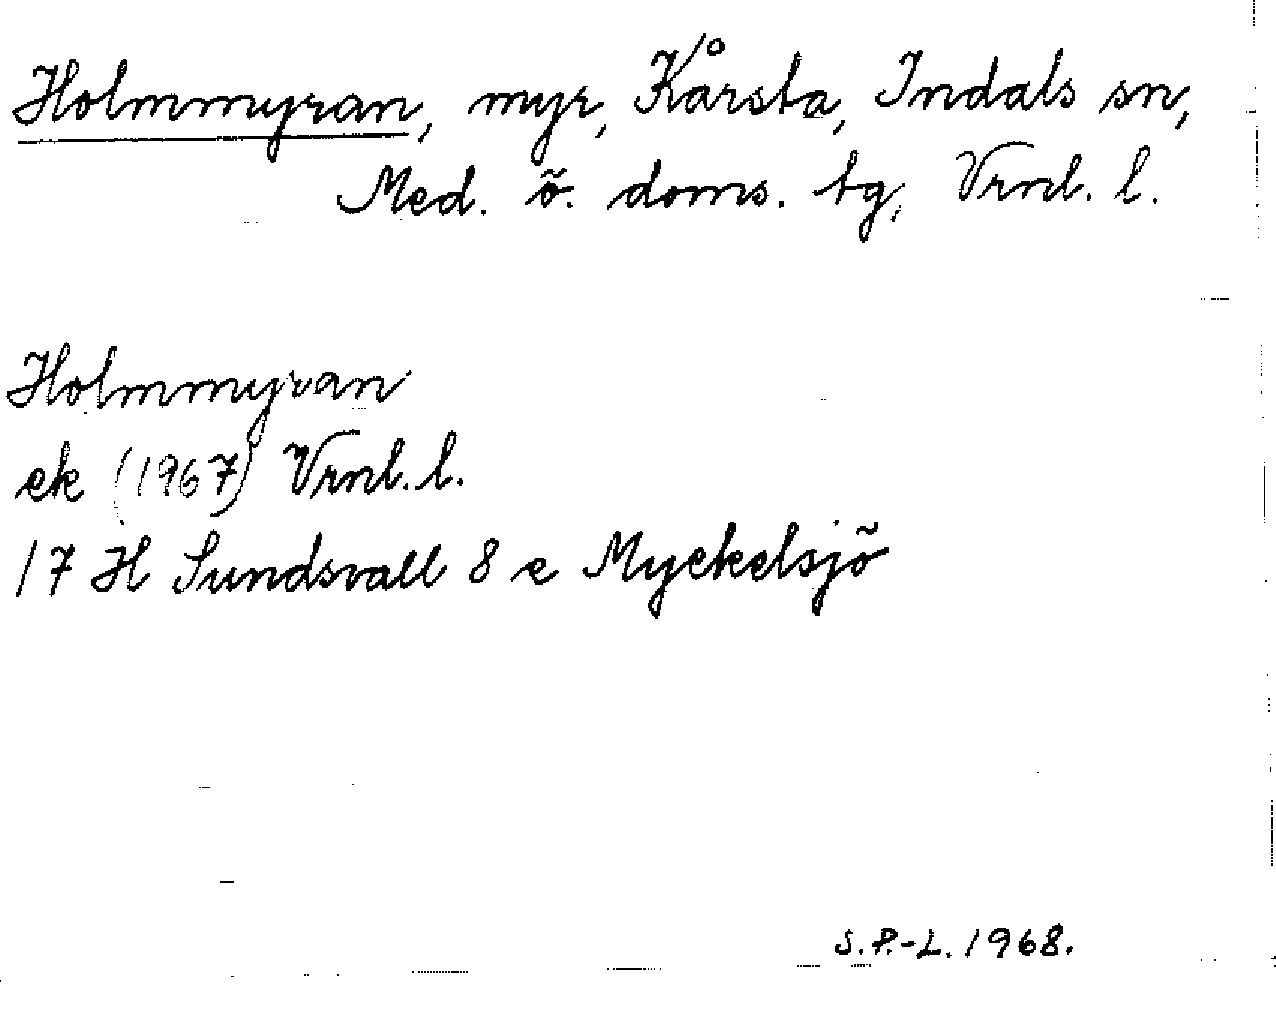 Holmmyran, myr, Kårsta, Indals sn,
Med. ö. doms. tg, Vrnl. l.
Holmmyran
ek (1967) Vrnl. l.
17 H Sundsvall 8 e Myckelsjö
S.P.-L. 1968.